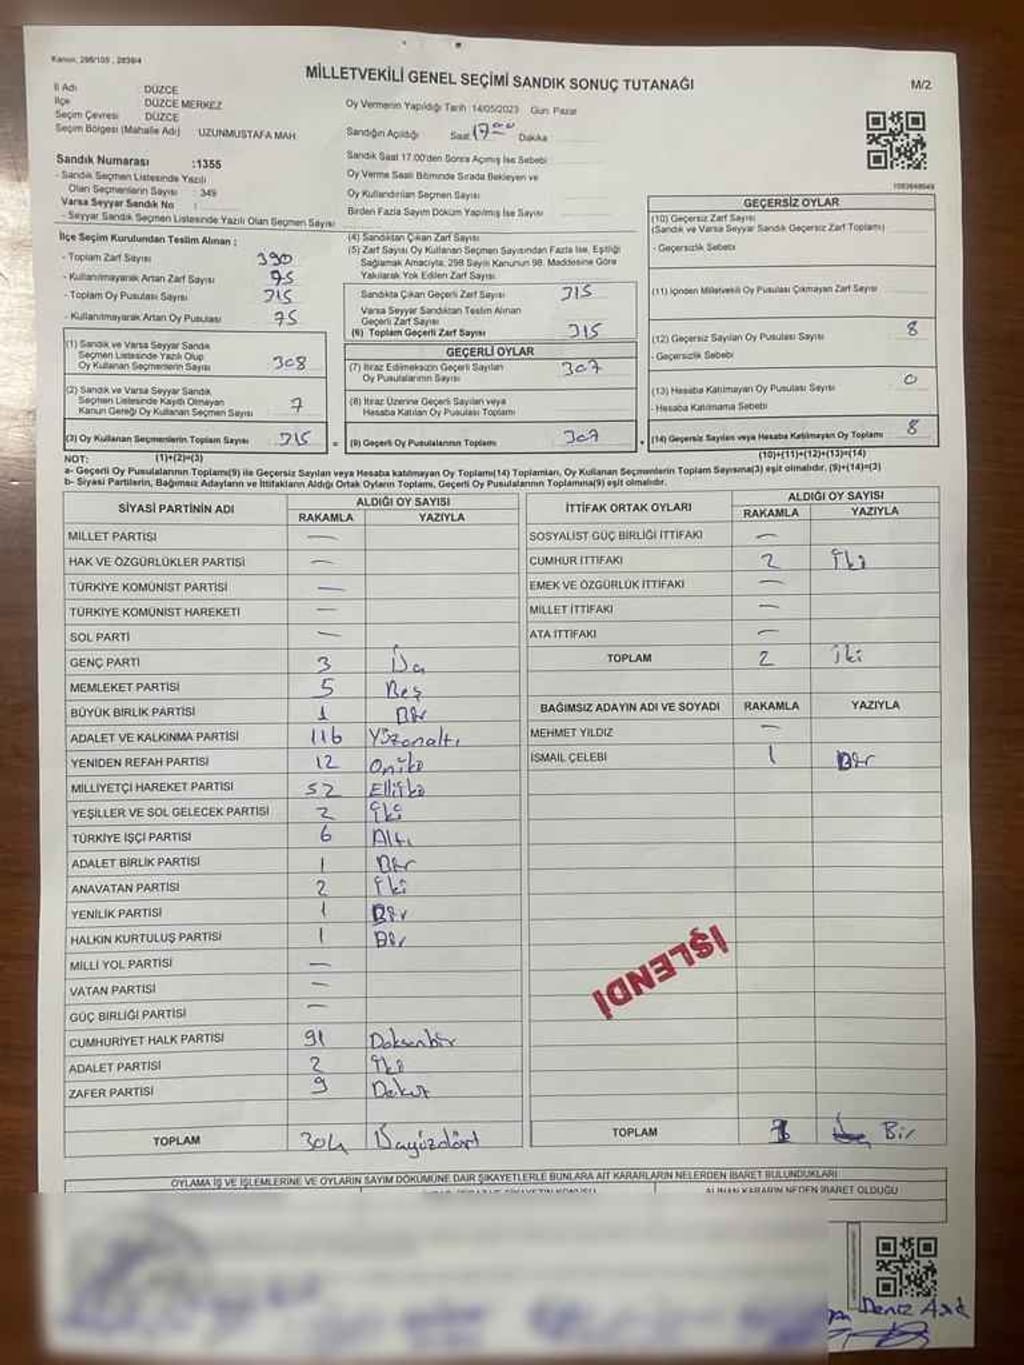 Kanun: 298/105 , 2839/4
MİLLETVEKİLİ GENEL SEÇİMİ SANDIK SONUÇ TUTANAĞI
M/2
İl Adı DÜZCE
İlçe DÜZCE MERKEZ
Seçim Çevresi DÜZCE
Seçim Bölgesi (Mahalle Adı) UZUNMUSTAFA MAH
Oy Vermenin Yapıldığı Tarih 14/05/2023 Gün: Pazar
Sandığın Açıldığı Saat 17 00 Dakika
Sandık Numarası :1355
- Sandık Seçmen Listesinde Yazılı
Olan Seçmenlerin Sayısı : 349
Varsa Seyyar Sandık No :
- Seyyar Sandık Seçmen Listesinde Yazılı Olan Seçmen Sayısı
Sandık Saat 17.00'den Sonra Açımış İse Sebebi
Oy Verme Saati Bitiminde Sırada Bekleyen ve
Oy Kullandırılan Seçmen Sayısı
Birden Fazla Sayım Döküm Yapılmış İse Sayısı
İlçe Seçim Kurulundan Teslim Alınan :
- Toplam Zarf Sayısı 390
- Kullanılmayarak Artan Zarf Sayısı 75
- Toplam Oy Pusulası Sayısı 315
- Kullanılmayarak Artan Oy Pusulası 75
(1) Sandık ve Varsa Seyyar Sandık
Seçmen Listesinde Yazılı Olup
Oy Kullanan Seçmenlerin Sayısı 308
(2) Sandık ve Varsa Seyyar Sandık
Seçmen Listesinde Kayıtlı Olmayan
Kanun Gereği Oy Kullanan Seçmen Sayısı 7
(3) Oy Kullanan Seçmenlerin Toplam Sayısı 315 =
(4) Sandıktan Çıkan Zarf Sayısı
(5) Zarf Sayısı Oy Kullanan Seçmen Sayısından Fazla İse, Eşitliği
Sağlamak Amacıyla, 298 Sayılı Kanunun 98. Maddesine Göre
Yakılarak Yok Edilen Zarf Sayısı
Sandıkta Çıkan Geçerli Zarf Sayısı 315
Varsa Seyyar Sandıktan Teslim Alınan
Geçerli Zarf Sayısı
(6) Toplam Geçerli Zarf Sayısı 315
GEÇERLİ OYLAR
(7) İtiraz Edilmeksizin Geçerli Sayılan
Oy Pusulalarının Sayısı 307
(8) İtiraz Üzerine Geçerli Sayılan veya
Hesaba Katılan Oy Pusulası Toplamı
(9) Geçerli Oy Pusulalarının Toplamı 307 +
GEÇERSİZ OYLAR
(10) Geçersiz Zarf Sayısı
(Sandık ve Varsa Seyyar Sandık Geçersiz Zarf Toplamı)
- Geçersizlik Sebebi
(11) İçinden Milletvekili Oy Pusulası Çıkmayan Zarf Sayısı
(12) Geçersiz Sayılan Oy Pusulası Sayısı 8
- Geçersizlik Sebebi
(13) Hesaba Katılmayan Oy Pusulası Sayısı 0
- Hesaba Katılmama Sebebi
(14) Geçersiz Sayılan veya Hesaba Katılmayan Oy Toplamı 8
NOT: (1)+(2)=(3) (10)+(11)+(12)+(13)=(14)
a- Geçerli Oy Pusulalarının Toplamı(9) ile Geçersiz Sayılan veya Hesaba katılmayan Oy Toplamı(14) Toplamları, Oy Kullanan Seçmenlerin Toplam Sayısına(3) eşit olmalıdır. (9)+(14)=(3)
b- Siyasi Partilerin, Bağımsız Adayların ve İttifakların Aldığı Ortak Oyların Toplamı, Geçerli Oy Pusulalarının Toplamına(9) eşit olmalıdır.
SİYASİ PARTİNİN ADI ALDIĞI OY SAYISI
RAKAMLA YAZIYLA
MİLLET PARTİSİ —
HAK VE ÖZGÜRLÜKLER PARTİSİ —
TÜRKİYE KOMÜNİST PARTİSİ —
TÜRKİYE KOMÜNİST HAREKETİ —
SOL PARTİ —
GENÇ PARTİ 3 Üç
MEMLEKET PARTİSİ 5 Beş
BÜYÜK BİRLİK PARTİSİ 1 Bir
ADALET VE KALKINMA PARTİSİ 116 Yüzonaltı
YENİDEN REFAH PARTİSİ 12 Oniki
MİLLİYETÇİ HAREKET PARTİSİ 52 Elliiki
YEŞİLLER VE SOL GELECEK PARTİSİ 2 İki
TÜRKİYE İŞÇİ PARTİSİ 6 Altı
ADALET BİRLİK PARTİSİ 1 Bir
ANAVATAN PARTİSİ 2 İki
YENİLİK PARTİSİ 1 Bir
HALKIN KURTULUŞ PARTİSİ 1 Bir
MİLLİ YOL PARTİSİ —
VATAN PARTİSİ —
GÜÇ BİRLİĞİ PARTİSİ —
CUMHURİYET HALK PARTİSİ 91 Doksanbir
ADALET PARTİSİ 2 İki
ZAFER PARTİSİ 9 Dokuz
TOPLAM 304 Üçyüzdört
İTTİFAK ORTAK OYLARI ALDIĞI OY SAYISI
RAKAMLA YAZIYLA
SOSYALİST GÜÇ BİRLİĞİ İTTİFAKI —
CUMHUR İTTİFAKI 2 İki
EMEK VE ÖZGÜRLÜK İTTİFAKI —
MİLLET İTTİFAKI —
ATA İTTİFAKI —
TOPLAM 2 İki
BAĞIMSIZ ADAYIN ADI VE SOYADI RAKAMLA YAZIYLA
MEHMET YILDIZ —
İSMAİL ÇELEBİ 1 Bir
İŞLENDİ
TOPLAM 1 Bir
OYLAMA İŞ VE İŞLEMLERİNE VE OYLARIN SAYIM DÖKÜMÜNE DAİR ŞİKAYETLERLE BUNLARA AİT KARARLARIN NELERDEN İBARET BULUNDUKLARI
ALINAN KARARIN NEDEN İBARET OLDUĞU
Deniz